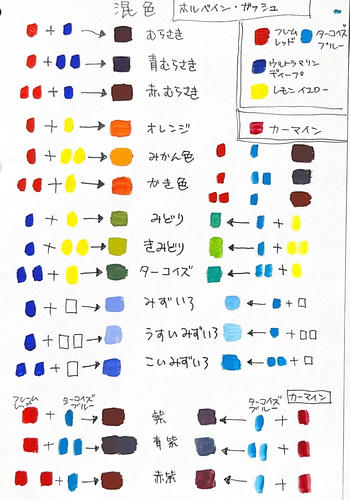 混色
ホルベイン・ガッシュ
フレームレッド
ターコイズブルー
ウルトラマリンディープ
レモンイエロー
カーマイン
むらさき
青むらさき
赤むらさき
オレンジ
みかん色
かき色
みどり
きみどり
ターコイズ
みずいろ
うすいみずいろ
こいみずいろ
フレームレッド
ターコイズブルー
ターコイズブルー
カーマイン
紫
青紫
赤紫